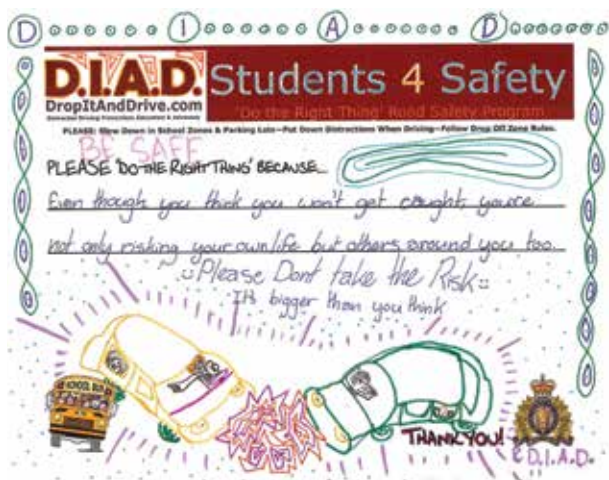 D I A D
D.I.A.D. Students 4 Safety
DropItAndDrive.com
Distracted Driving Prevention, Education & Advocacy
'Do the Right Thing' Road Safety Program
PLEASE: Slow Down in School Zones & Parking Lots—Put Down Distractions When Driving—Follow Drop Off Zone Rules.
BE SAFE
PLEASE 'DO THE RIGHT THING' BECAUSE...
Even though you think you won't get caught, you're
not only risking your own life but others around you too.
Please Dont take the Risk
It's bigger than you think
SCHOOL BUS
THANK YOU!
& D.I.A.D.